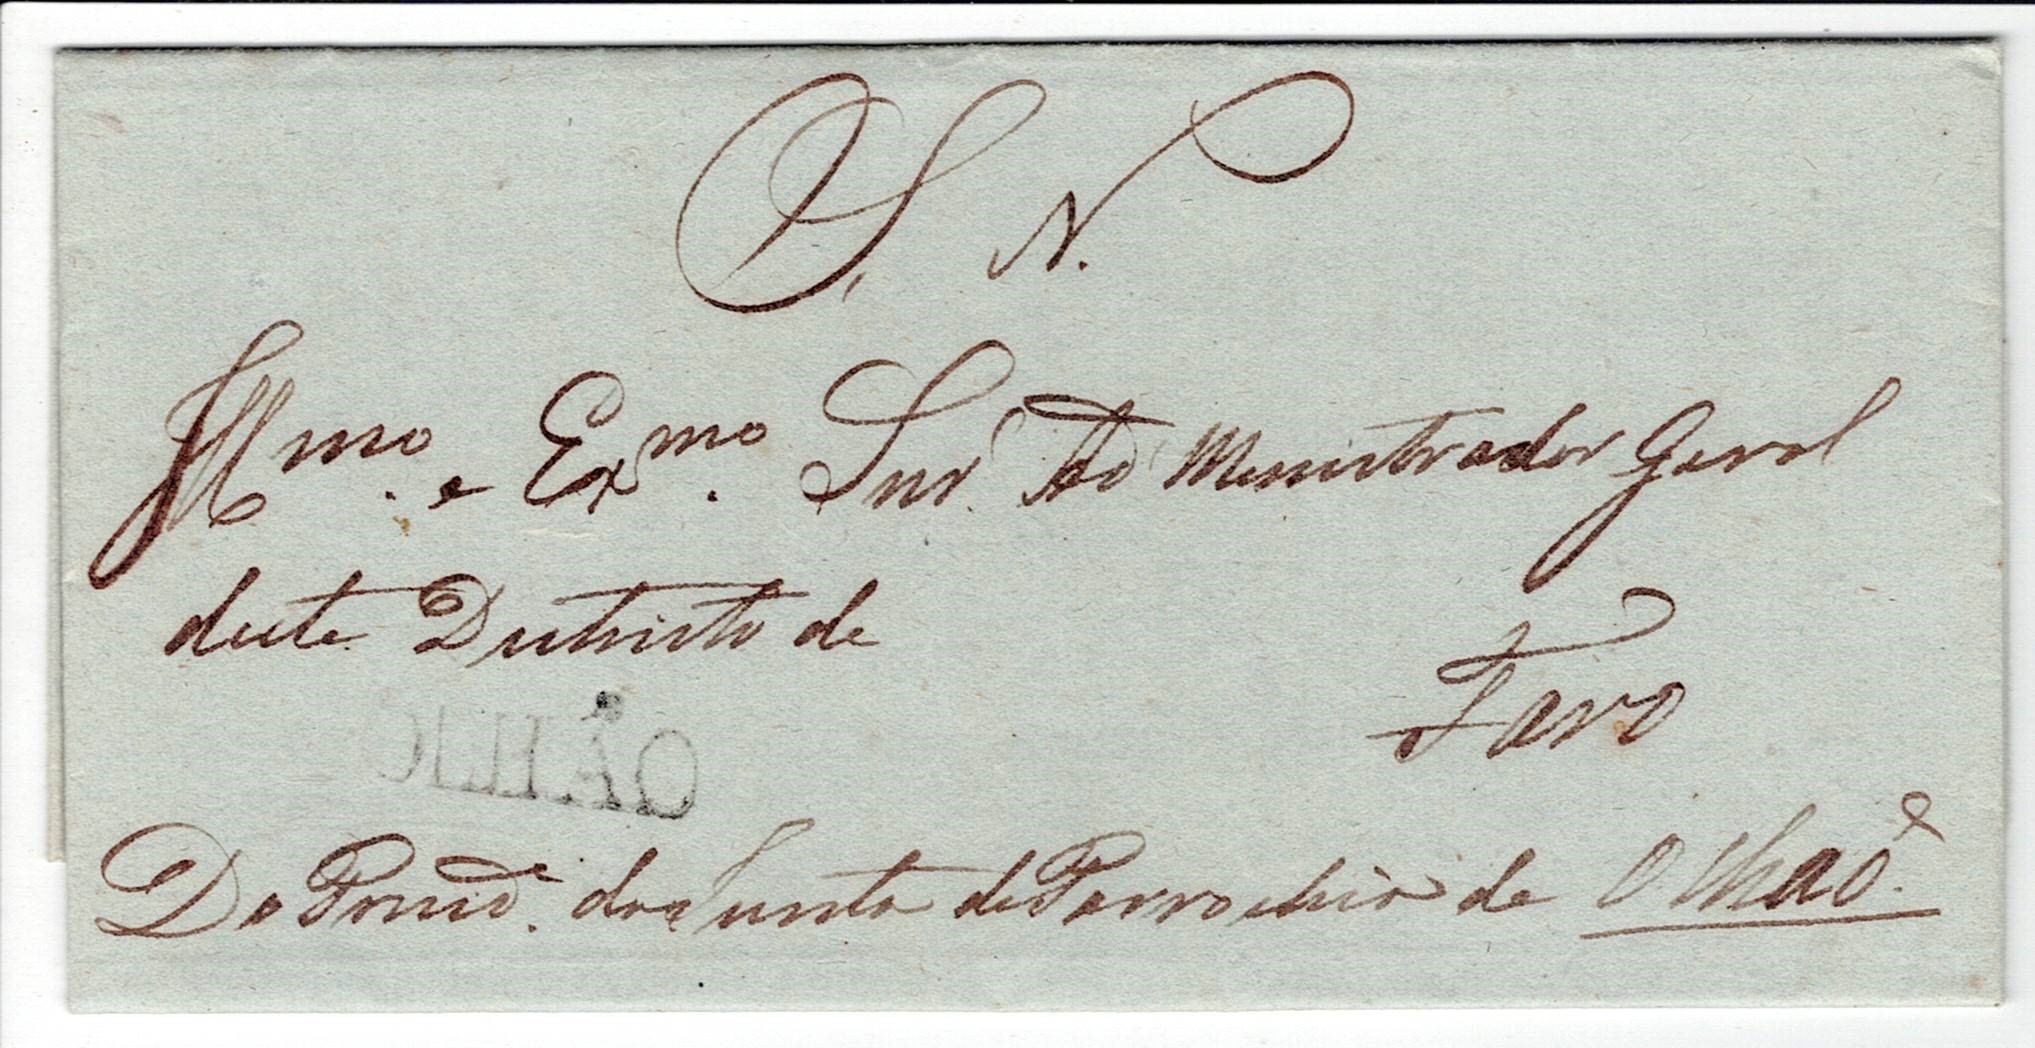 S. N.
Illmo. e Exmo. Snr. Ad Menistrador Geral
deste Destricto de
Faro
OLHÃO
Do Prezid.e da Junta de Parrochia de Olhaõ.